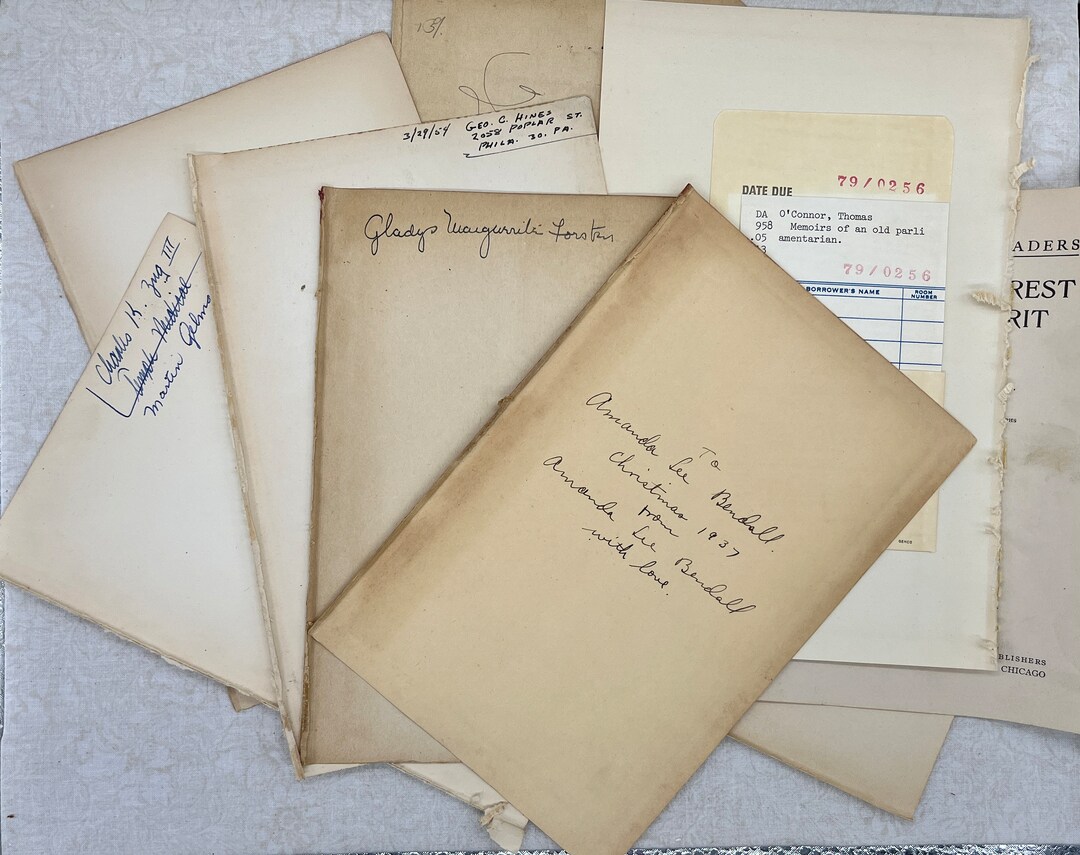 3/29/54 GEO. C. HINES
2058 POPLAR ST.
PHILA. 30. PA.
79/0256
DATE DUE
DA O'Connor, Thomas
958 Memoirs of an old parli
.05 amentarian.
79/0256
BORROWER'S NAME
ROOM
NUMBER
ADERS
REST
RIT
BLISHERS
CHICAGO
Gladys Marguerite
Charles K. Zug III
Martin
To
Amanda Lee Bendall.
Christmas 1937
from
Amanda Lee Bendall
with love.